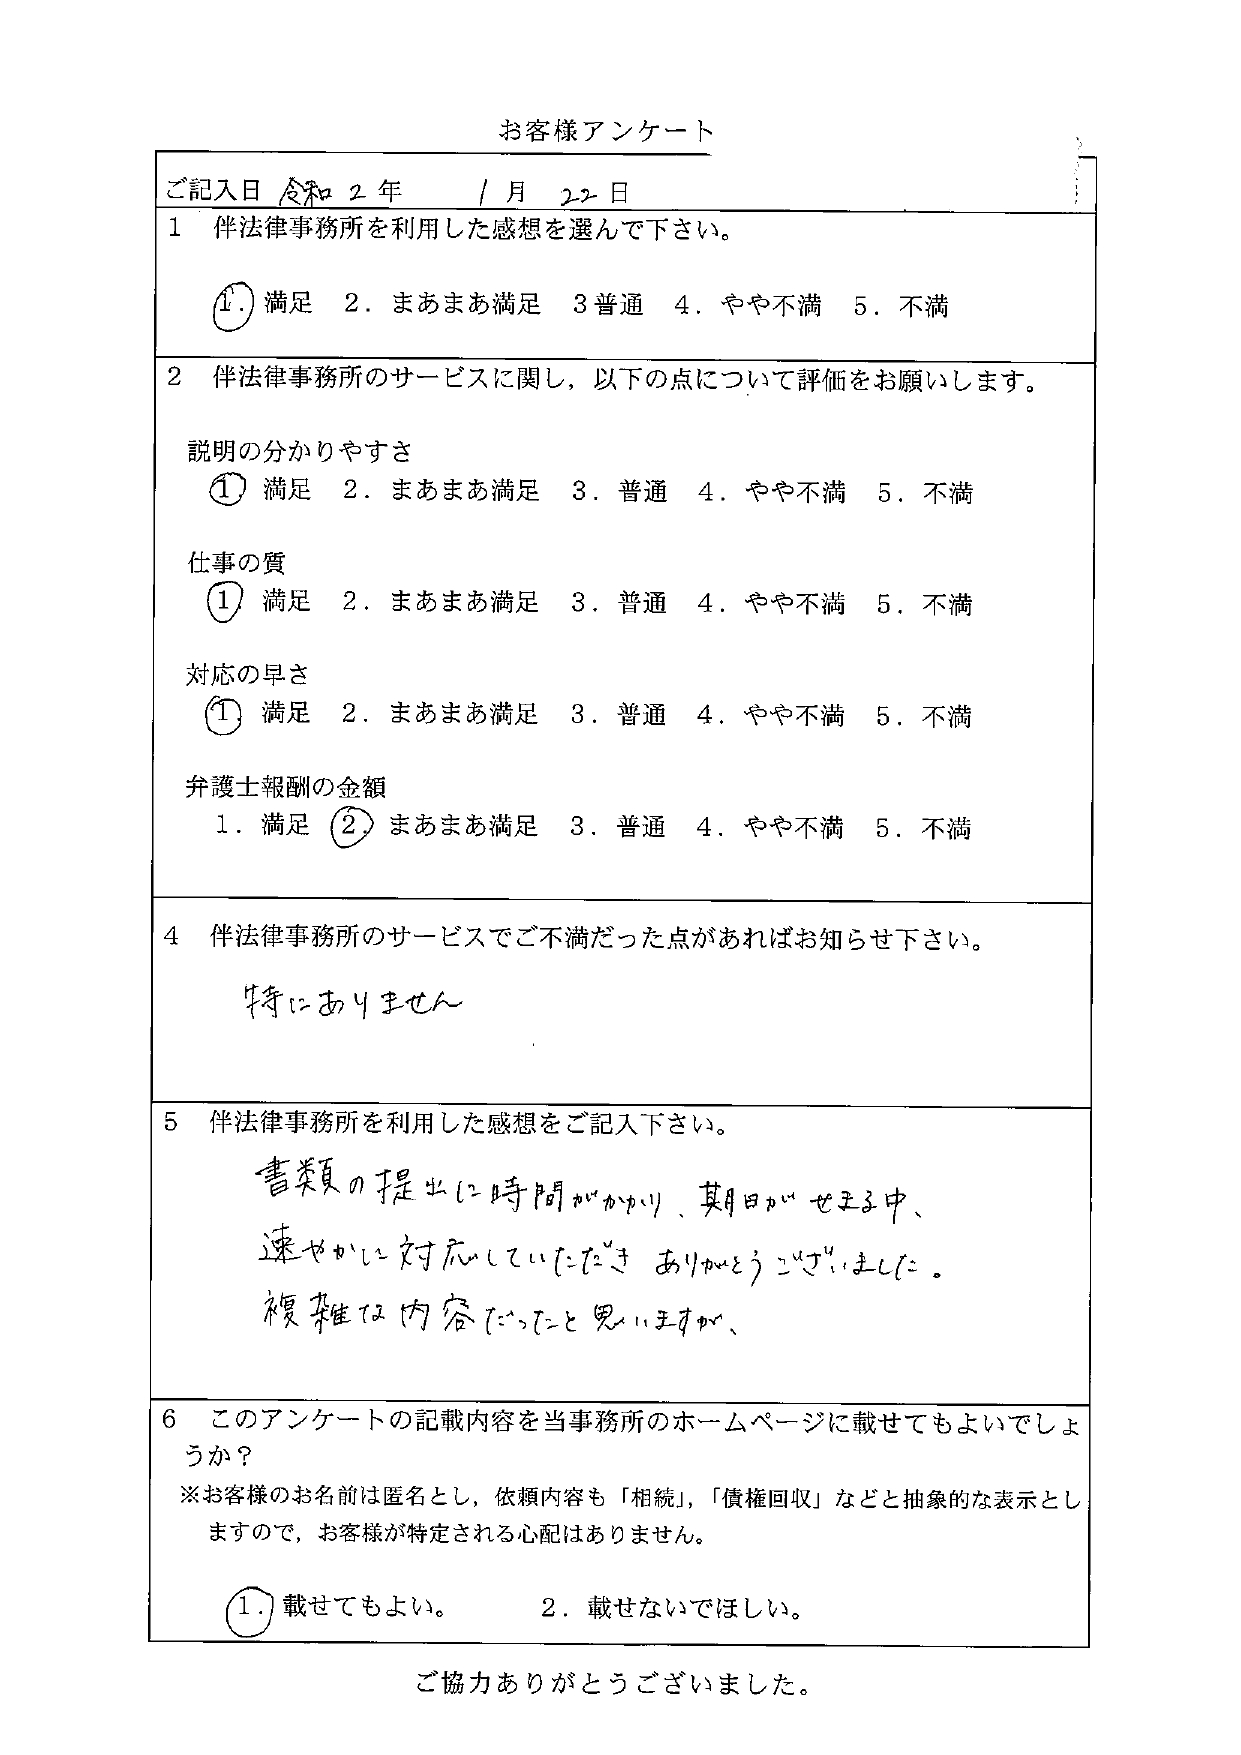 お客様アンケート
ご記入日 令和 2 年 1 月 22 日
1 伴法律事務所を利用した感想を選んで下さい。
1. 満足 2. まあまあ満足 3普通 4. やや不満 5. 不満
2 伴法律事務所のサービスに関し,以下の点について評価をお願いします。
説明の分かりやすさ
1 満足 2. まあまあ満足 3. 普通 4. やや不満 5. 不満
仕事の質
1 満足 2. まあまあ満足 3. 普通 4. やや不満 5. 不満
対応の早さ
1 満足 2. まあまあ満足 3. 普通 4. やや不満 5. 不満
弁護士報酬の金額
1. 満足 2. まあまあ満足 3. 普通 4. やや不満 5. 不満
4 伴法律事務所のサービスでご不満だった点があればお知らせ下さい。
特にありません
5 伴法律事務所を利用した感想をご記入下さい。
書類の提出に時間がかかり、期日がせまる中、
速やかに対応していただき ありがとうございました。
複雑な内容だったと思いますが、
6 このアンケートの記載内容を当事務所のホームページに載せてもよいでしょ
うか?
※お客様のお名前は匿名とし,依頼内容も「相続」,「債権回収」などと抽象的な表示とし
ますので,お客様が特定される心配はありません。
1. 載せてもよい。 2. 載せないでほしい。
ご協力ありがとうございました。